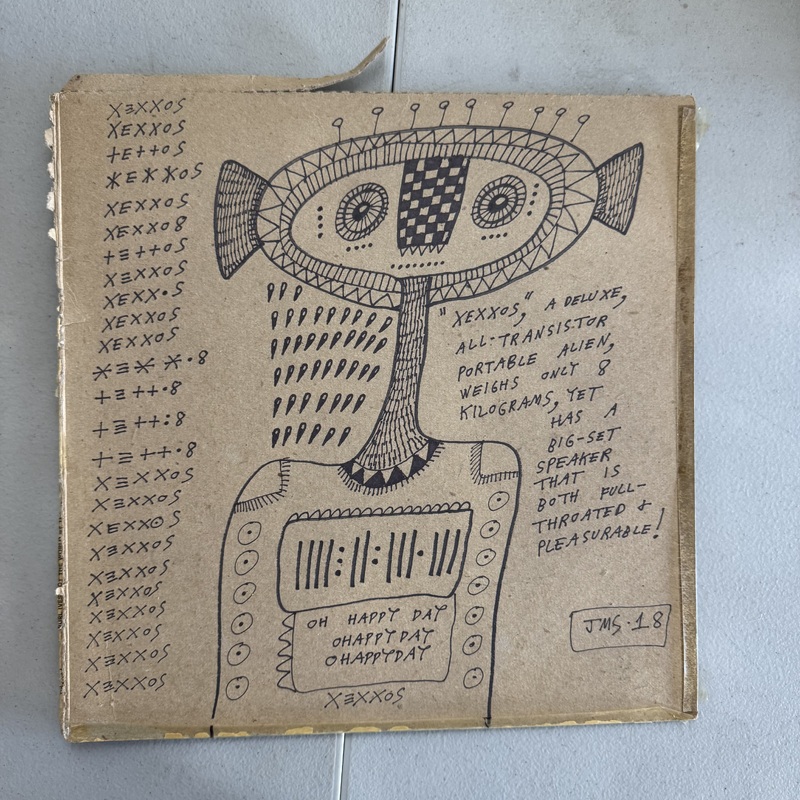 XƎXXOS
XEXXOS
+E++OS
ӾEӾӾOS
XEXXOS
XEXXO8
+Ξ++OS
XΞXXOS
XEXX•S
XEXXOS
XEXXOS
ӾΞӾ Ӿ•8
+Ξ ++•8
+Ξ ++:8
+Ξ ++•8
XΞXXOS
XΞXXOS
XEXX⊙S
XΞXXOS
XΞXXOS
XΞXXOS
XΞXXOS
XΞXXOS
XΞXXOS
XΞXXOS
"XEXXOS," A DELUXE,
ALL-TRANSISTOR
PORTABLE ALIEN,
WEIGHS ONLY 8
KILOGRAMS, YET
HAS A
BIG-SET
SPEAKER
THAT IS
BOTH FULL-
THROATED &
PLEASURABLE!
OH HAPPY DAY
OHAPPY DAY
OHAPPYDAY
XƎXXOS
JMS·18